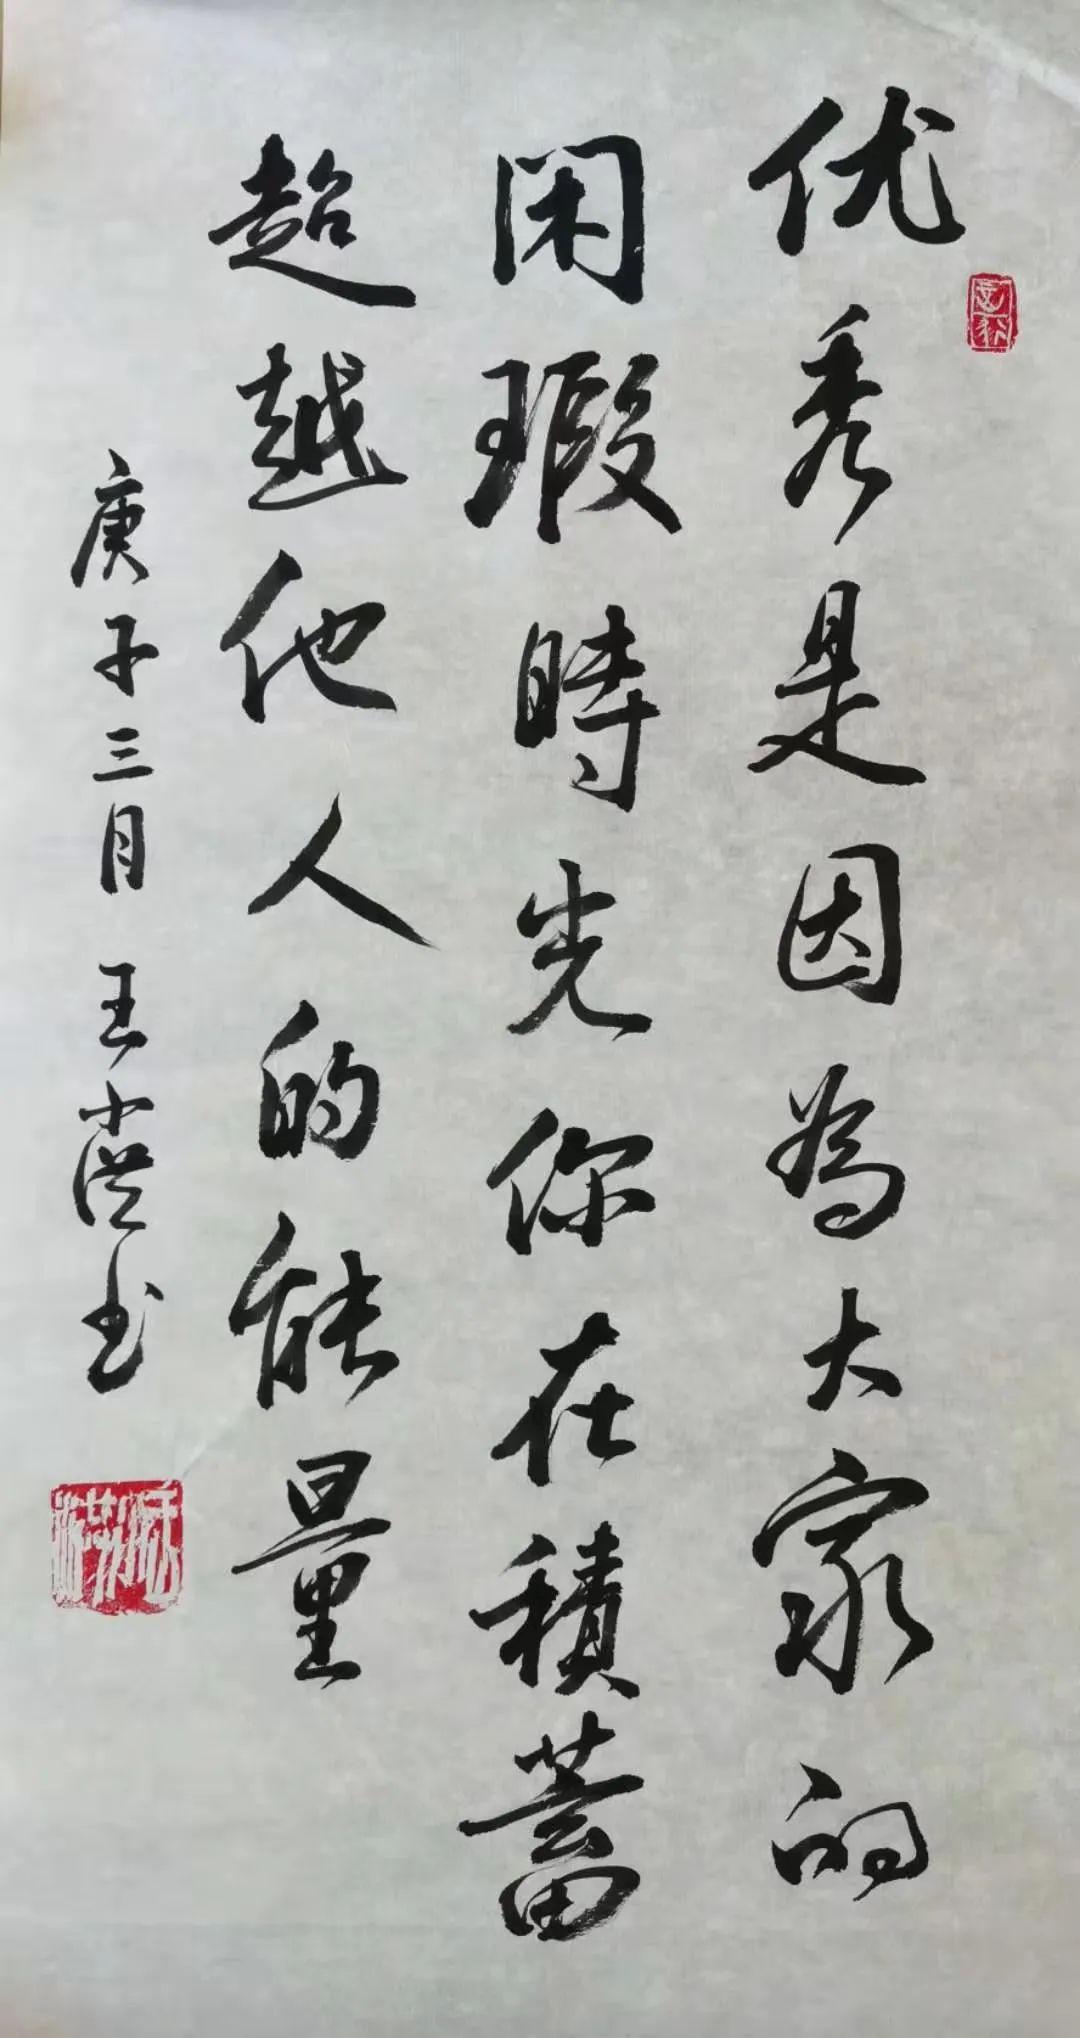 优秀是因為大家的
闲瑕時光你在積蓄
超越他人的能量
庚子三月王小洪书